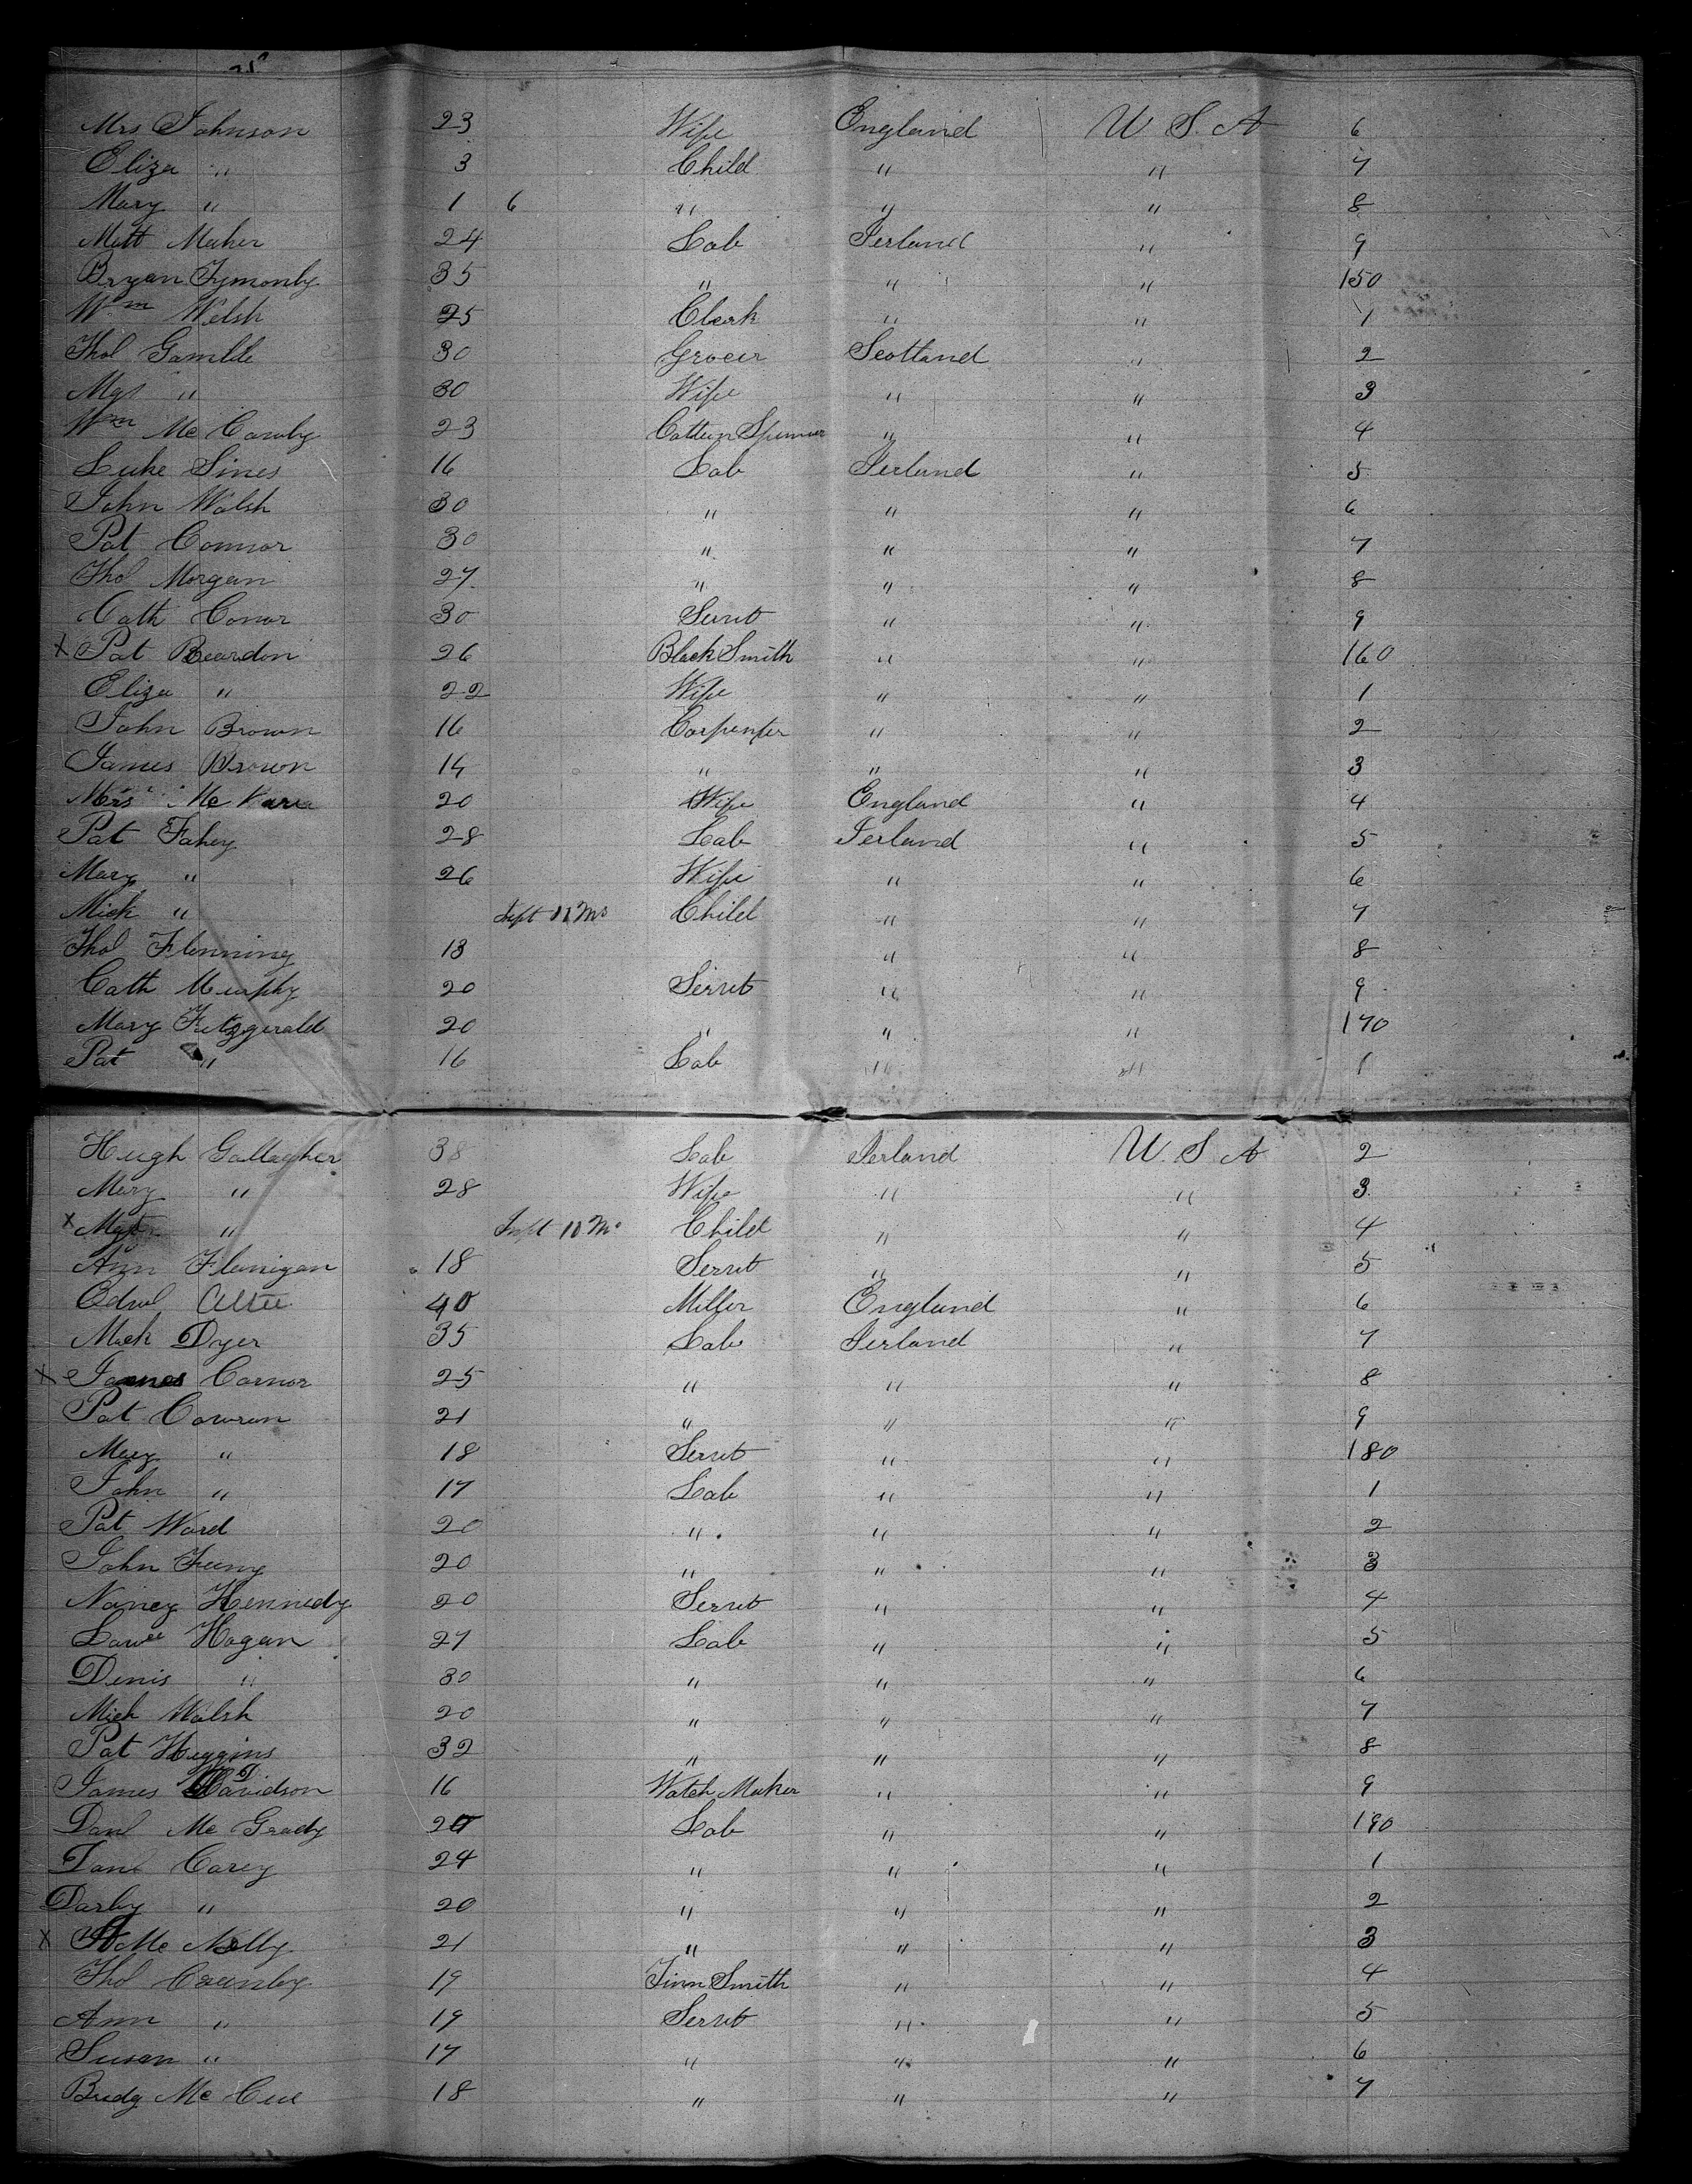 Mrs Johnson 23 Wife England U.S.A 6
Eliza " 3 Child " " 7
Mary " 1 6 " " " 8
Matt Maher 24 Lab Ierland " 9
Bryan 35 " " " 150
Wm Welsh 25 Clerk " " 1
Tho Gamble 30 Grocer Scotland " 2
Mgt " 30 Wife " " 3
Wm Mc 23 Cotten Spinner " " 4
Luke Sines 16 Lab Ierland " 5
John Walsh 30 " " " 6
Pat Connor 30 " " " 7
Tho Morgan 27 " " " 8
Cath Conor 30 Servt " " 9
X Pat Reardon 26 Black Smith " " 160
Eliza " 22 Wife " " 1
John Brown 16 Carpenter " " 2
James Brown 14 " " " 3
Mrs Mc 20 Wife England " 4
Pat Fahey 28 Lab Ierland " 5
Mary " 26 Wife " " 6
Mick " Inft 11 Ms Child " " 7
Tho Flenning 13 " " 8
Cath Murphy 20 Servt " " 9
Mary Fitzgerald 20 " " " 170
Pat " 16 Lab " " 1
Hugh Gallagher 38 Lab Ierland U.S.A 2
Mary " 28 Wife " " 3
X Mgt " Inft 10 Mo Child " " 4
Ann Flanigan 18 Servt " " 5
Edwd 40 Miller England " 6
Mick Dyer 35 Lab Ierland " 7
X James Connor 25 " " " 8
Pat Cawran 21 " " " 9
Mary " 18 Servt " " 180
John " 17 Lab " " 1
Pat Ward 20 " " " 2
John 20 " " " 3
Nancy Kennedy 20 Servt " " 4
Lawce Hogan 27 Lab " " 5
Denis " 30 " " " 6
Mich Walsh 20 " " " 7
Pat Higgins 32 " " " 8
James Davidson 16 Watch Maker " " 9
Danl Mc Grady 20 Lab " " 190
Danl Carey 24 " " " 1
Darby " 20 " " " 2
X Mc Nelly 21 " " " 3
Tho 19 Tinn Smith " " 4
Ann " 19 Servt " " 5
Susan " 17 " " " 6
Bridg Mc Cue 18 " " " 7